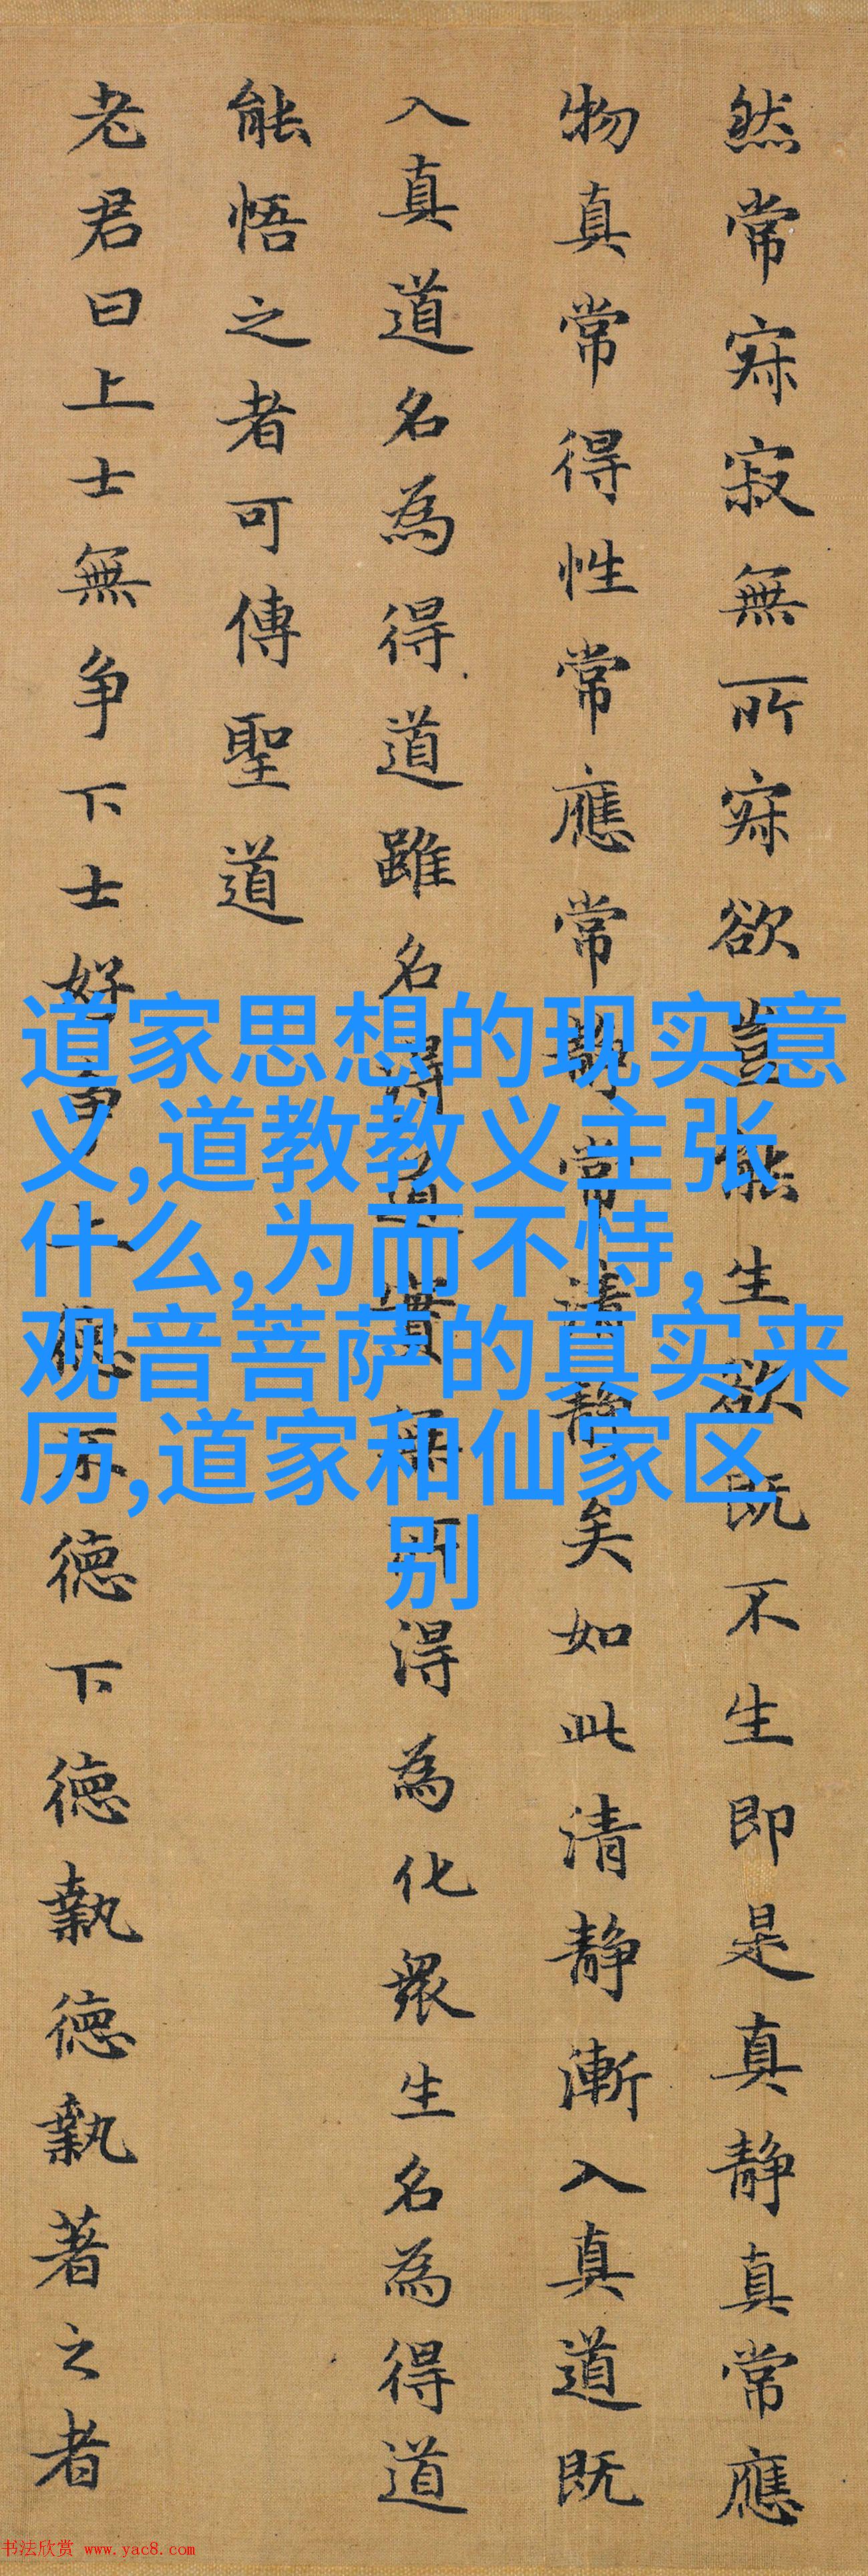 然常寂寂無所寂欲豈能生欲既不生即是真静真常應
物真常得性常應常静常清静矣如此清静漸入真道既
入真道名為得道雖名得道實無所得為化衆生名為得道
能悟之者可傳聖道
老君曰上士無争下士好争上德不德下德執德執著之者
道家思想的现实意
义,道教教义主张
什么,为而不恃,
观音菩萨的真实来
历,道家和仙家区
别
书法欣赏 www.yac8.com